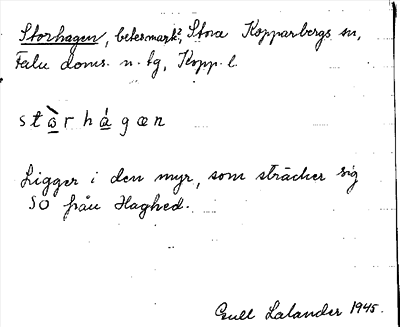 Storhagen, betesmark?, Stora Kopparbergs sn,
Falu doms. n. tg, Kopp. l.
stò̱rhá̱gæn
Ligger i den myr, som sträcker sig
SO från Haghed.
Gull Lalander 1945.